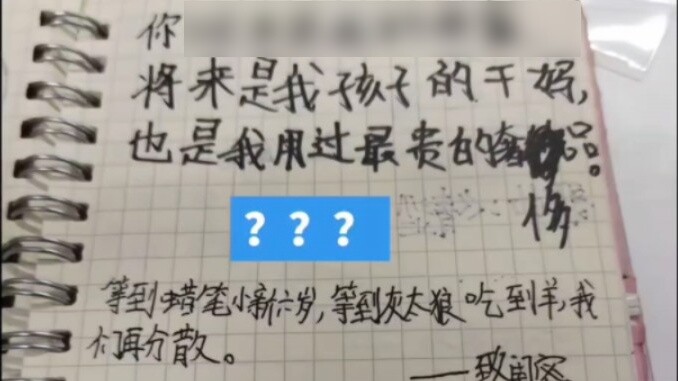 你
将来是我孩子的干妈,
也是我用过最贵的奢品。
侈
？？？
等到蜡笔小新六岁,等到灰太狼吃到羊,我
们再分散。
——致闺密